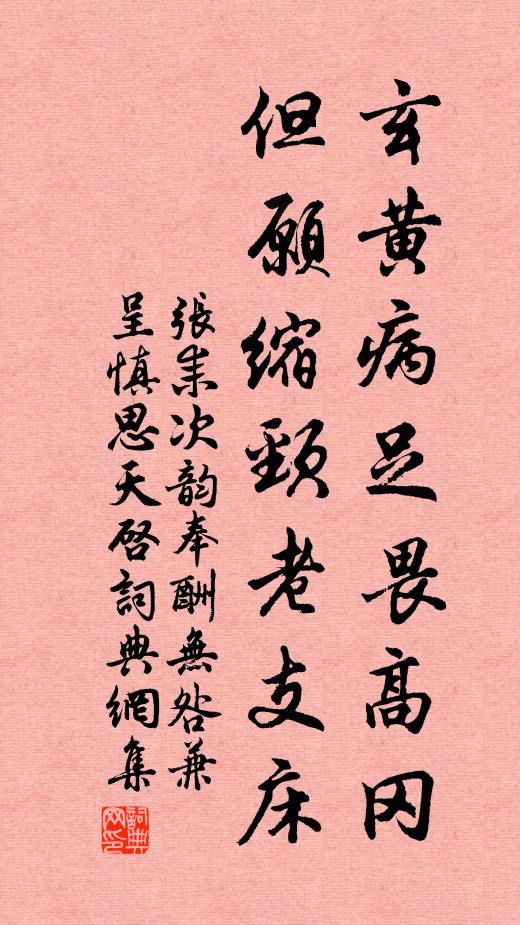 玄黄病足畏高冈
但願缩頸老支床
張耒次韵奉酬無咎兼
呈慎思天啓詞典網集
詞典网印